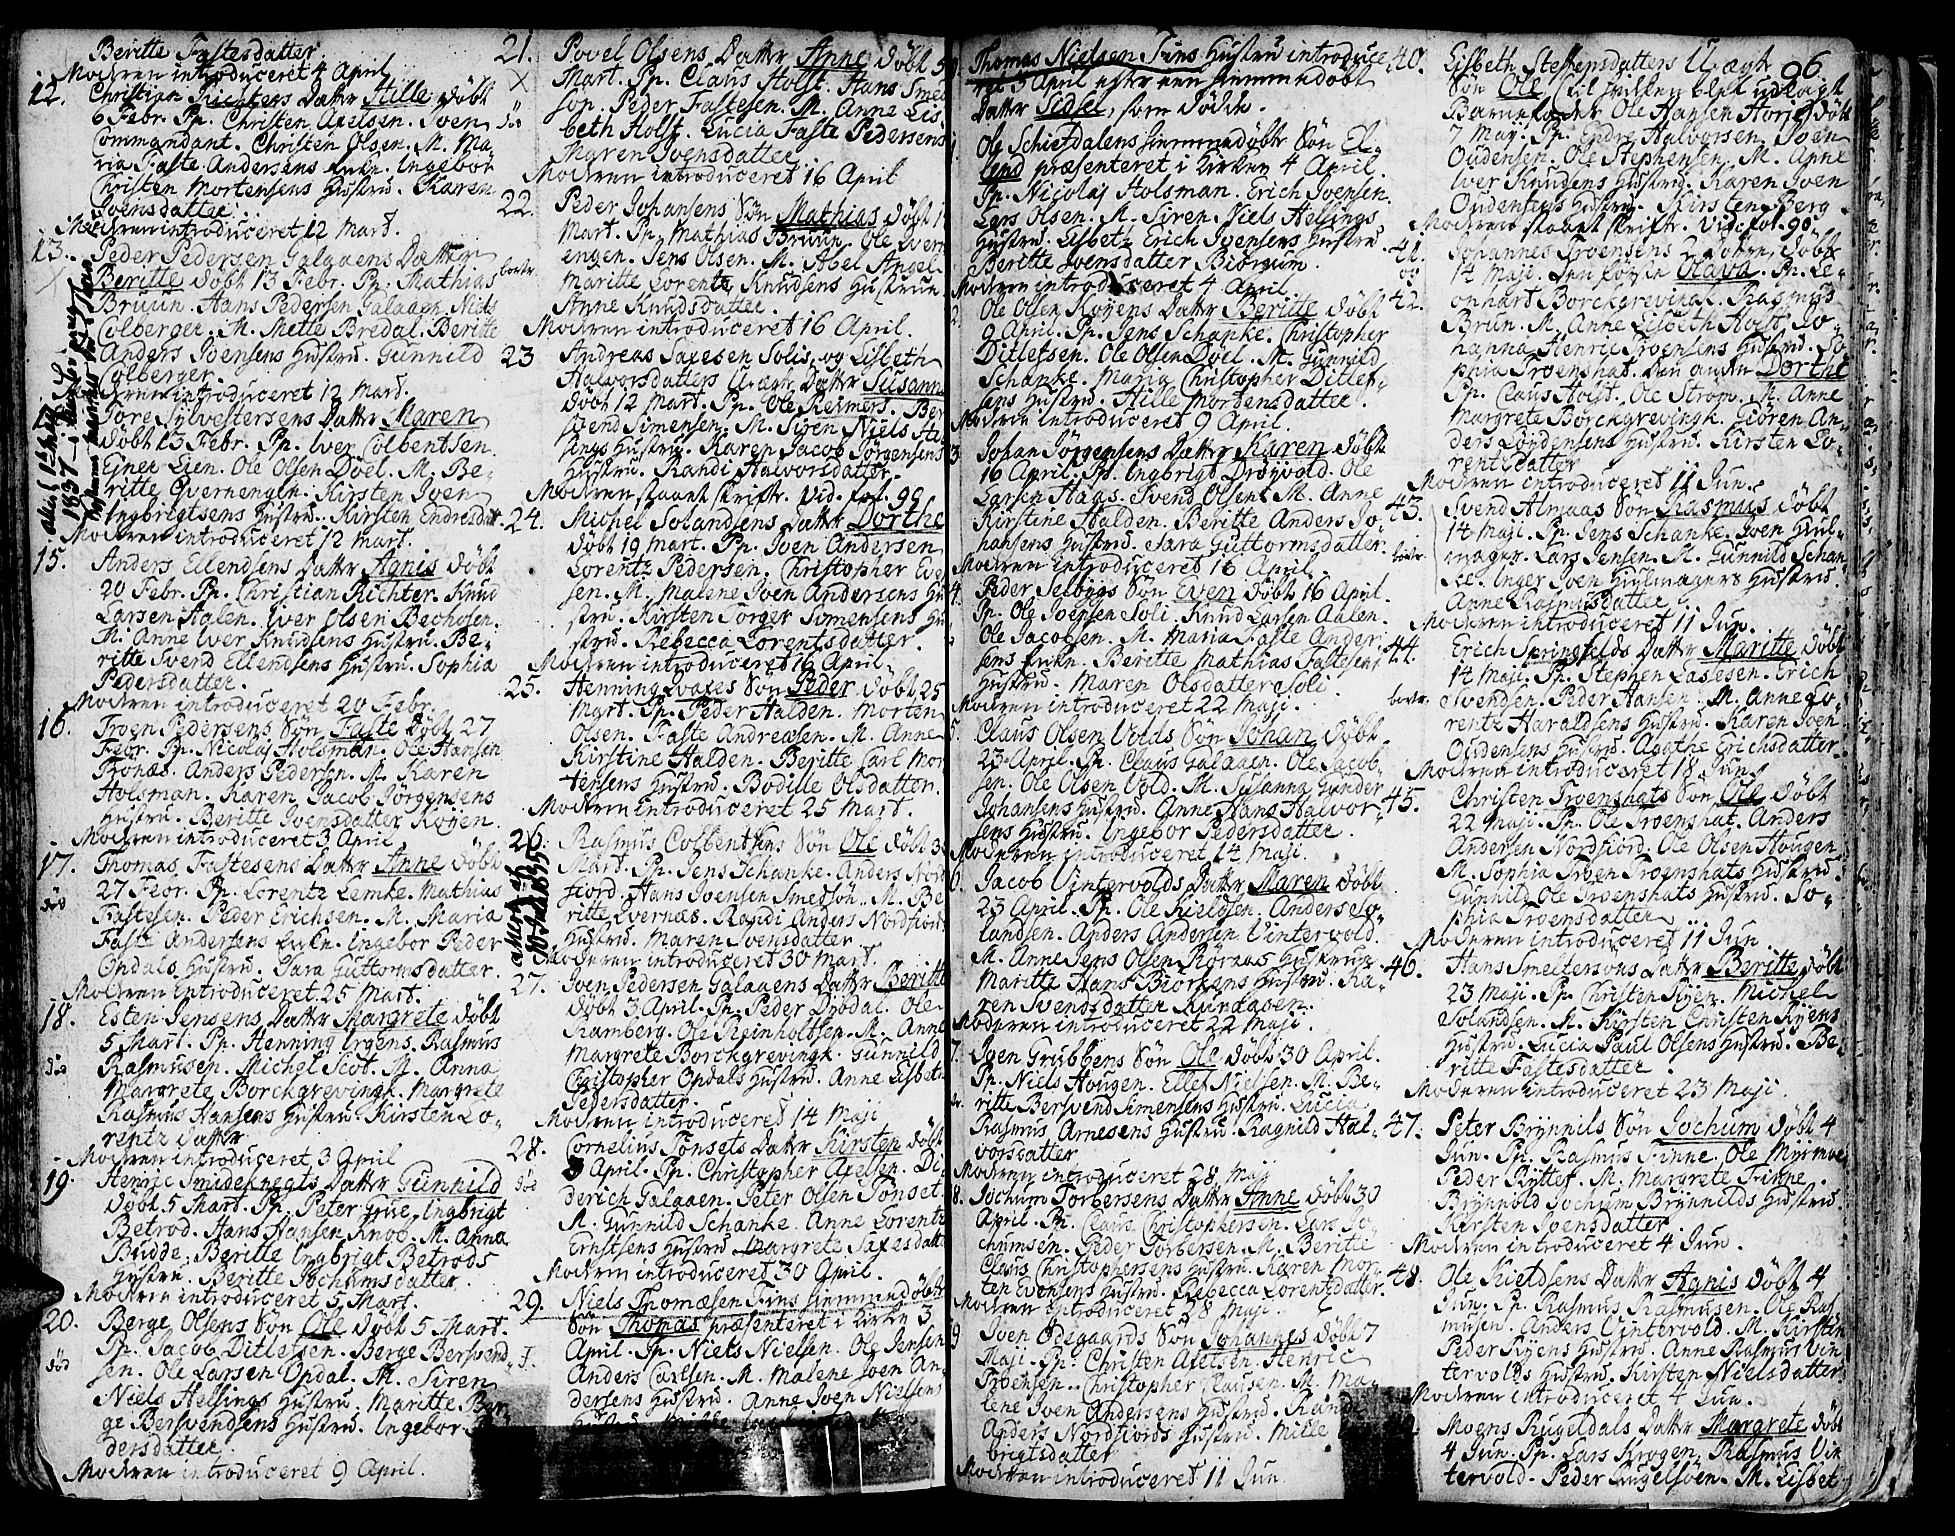 Beritte Fastesdatter.
Modren introduceret 4 April
12. Christian Richters Datter Hille döbt
6 Febr. Pp. Christen Axelsen. Iven
Commandant. Christen Olsen. M. Ma-
ria Faste Andersens Enke. Ingebor
Christen Mortensens Hustru. Karen
Ivensdatter.
Modren introduceret 12 Mart.
13. Peder Pedersen Galaaens Datter
Beritte döbt 13 Febr. Pp. Mathias
Bruun. Hans Pedersen Galaaen. Niels
Colberger. M. Mette Bredal. Beritte
Anders Ivensens Hustru. Gunnild
Colberger.
Modren introduceret 12 Mart.
Tore Sylvestersens Datter Maren
döbt 13 Febr. Pp. Iver Colbentsen.
Einer Lien. Ole Olsen Döel. M. Be-
ritte Qvernengen. Kirsten Iven
Ingbrigtsens Hustru. Kirsten Endresdatt
Modren introduceret 12 Mart.
15. Anders Ellendsens Datter Agnis döbt
20 Febr. Pp. Christian Richter. Knud
Larsen Aalen. Iver Olsen Bechosen.
M. Anne Iver Knudsens Hustru. Be-
ritte Svend Ellendsens Hustru. Sophia
Pedersdatter.
Modren introduceret 20 Febr.
16. Troen Pedersens Sön Faste döbt 27
Febr. Pp. Nicolaj Holsman. Ole Hansen
Trönæs. Anders Pedersen. M. Karen
Holsman. Karen Jacob Jörgensens
Hustru. Beritte Ivensdatter Kojen.
Modren introduceret 3 April
17. Thomas Fastesens Datter Anne döbt
27 Febr. Pp. Lorentz Lemke. Mathias
död Fastesen. Peder Erichsen. M. Maria
Faste Andersens Enke. Ingebor Peder
Opdals Hustru. Sara Guttormsdatter.
Modren introduceret 25 Mart.
18. Esten Jensens Datter Margrete döbt
5 Mart. Pp. Henning Irgens. Rasmus
död Rasmusen. Michel Scot. M. Anna
Margrete Borckgrevingk. Margrete
Rasmus Hansens Hustru. Kirsten Lo-
rentz Datter
Modren introduceret 3 April
19. Henric Smideknegts Datter Gunnild
döbt 5 Mart. Pp. Peter Grue. Ingbrigt
Betrod. Hans Hansen Knoc. M. Anna
Budde. Beritte Ingbrigt Betrods
Hustru. Beritte Jochumsdatter.
Modren introduceret 5 Mart.
20. Berge Olsens Sön Ole döbt 5 Mart.
Pp. Jacob Ditlefsen. Berge Bersvend-
död sen. Ole Larsen Opdal. M. Siren
Niels Helsings Hustru. Maritte Ber-
ge Bersvendsens Hustru. Ingebor
dersdatter.
Modren introduceret 9 April.
21. Povel Olsens Datter Anne döbt 5
Mart. Pp. Claus Holst. Hans Smed
död son. Peder Fastesen. M. Anne Lis-
beth Holst. Lucia Faste Pedersens
Maren Ivensdatter
Modren introduceret 16 April
22. Peder Johansens Sön Mathias döbt 1
Mart. Pp. Mathias Bruun. Ole Qvern
engen. Jens Olsen. M. Abel Angel
Maritte Lorentz Knudsens Hustrue
Anne Knudsdatter.
Modren introduceret 16 April.
23 Andreas Saxesen Solis og Lisbeth
Halvorsdatters U. ægte Datter Susanna
döbt 12 Mart. Pp. Ole Reimers. Ber
svend Simensen. M. Siren Niels Hel
sings Hustru. Karen Jacob Jörgensens
Hustru. Randi Halvorsdatter.
Modren staaet skrifte. Vid. fol. 99
24. Michel Solandsens Datter Dorthe
döbt 19 Mart. Pp. Iven Andersen
Lorentz Pedersen. Christopher Eve
sen. M. Malene Iven Andersens Hu
stru. Kirsten Torger Simensens Hu
stru. Rebecca Lorentsdatter.
Modren introduceret 16 April.
25. Henning Qvaxes Sön Peder döbt 25
Mart. Pp. Peder Halden. Morten
Olsen. Faste Andreasen. M. Anne
Kirstine Halden. Beritte Carl Mor
tensens Hustru. Bodille Olsdatter.
Modren introduceret 25 Mart.
26. Rasmus Colbentsens Sön Ole döbt 3
Mart. Pp. Jens Schanke. Anders Nord
fiord. Hans Ivensen Smedsön. M. Be
ritte Qvernæs. Randi Anders Nordfiords
Hustru. Maren Svensdatter
Modren introduceret 30 Mart.
27. Iven Pedersen Galaaens Datter Beritte
döbt 3 April. Pp. Peder Divdal. Ole
Ramberg. Ole Reinholdsen. M. Anne
Margrete Borckgrevingk. Gunnild
Christopher Opdals Hustru. Anne Lisbet
Pedersdatter.
Modren introduceret 14 Maji
28. Cornelius Tönsets Datter Kirsten döbt
död 3 April. Pp. Christopher Axelsen. Di-
derich Galaaen. Peter Olsen Tönset.
M. Gunnild Schanke. Anne Lorentz
Ernstsens Hustru. Margrete Saxesdatter
Modren introduceret 30 April.
29. Niels Thomæsen Fins hiemmedöbte
Sön Thomas præsenteret i Kirken 3
April. Pp. Niels Nielsen. Ole Jensen
Anders Carlsen. M. Malene Iven An-
dersens Hustru. Anne Iven Nielsens
Thomas Nielsen Fins Hustru introduce
ret 3 April efter een hiemmedöbt
Datter Sidsel, som döde.
Ole Schietdalens hiemmedöbte Sön El-
lend præsenteret i Kirken 4 April.
Pp. Nicolaj Holsman. Erich Ivensen.
Lars Olsen. M. Siren Niels Helsings
Hustru. Lisbeth Erich Ivensens Hustru
Beritte Ivensdatter Biornum.
Modren introduceret 4 April
Ole Olsen Kojens Datter Beritte döbt
9 April. Pp. Jens Schanke. Christopher
Ditlefsen. Ole Olsen Döel. M. Gunnild
Schanke. Maria Christopher Ditlef-
sens Hustru. Hille Mortensdatter.
Modren introduceret 9 April.
Johan Jörgensens Datter Karen döbt
16 April. Pp. Ingbrigt Dröjvold. Ole
Larsen Haas. Svend Olsen. M. Anne
Kirstine Halden. Beritte Anders Jo-
hansens Hustru. Sara Guttormsdatter.
Modren introduceret 16 April.
Peder Selbygs Sön Even döbt 16 April.
Pp. Ole Ivensen Soli. Knud Larsen Aalen.
Ole Jacobsen. M. Maria Faste Ander-
sens Enke. Beritte Mathias Fastesens
Hustru. Maren Olsdatter Soli.
Modren introduceret 22 Maji.
Claus Olsen Volds Sön Johan döbt
23 April. Pp. Claus Galaaen. Ole Jacob-
sen. Ole Olsen Vold. M. Susanna Gunder
Johansens Hustru. Anne Hans Halvor-
sens Hustru. Ingebor Pedersdatter.
Modren introduceret 14 Maji.
Jacob Vintervolds Datter Maren döbt
23 April. Pp. Ole Kieldsen. Anders So-
landsen. Anders Andersen Vintervold.
M. Anne Jens Olsen Rörnæs Hustrue
Maritte Hans Biörkens Hustru. Ka-
ren Svendsdatter Kurdaasen.
Modren introduceret 22 Maji.
Iven Grubbens Sön Ole döbt 30 April.
Pp. Niels Hougen. Ellef Nielsen. M. Be-
ritte Bersvend Simensens Hustru. Lucia
Rasmus Arnesens Hustru. Ragnild Hal-
vorsdatter
Modren introduceret 28 Maji
Jochum Torbersens Datter Anne döbt 30
April. Pp. Claus Christophersen. Lars Jo-
chumsen. Peder Torbersen. M. Beritte
Claus Christophersens Hustru. Karen Mor-
ten Evensens Hustru. Rebecca Lorentzdatter.
Modren introduceret 28 Maji.
Iven Ödegaards Sön Johannes döbt 7
Maji. Pp. Christen Axelsen. Henric
Troensen. Christopher Clausen. M. Ma-
lene Iven Andersens Hustru. Randi
Anders Nordfiords Hustru. Mille
brigtsdatter
Modren introduceret 11 Jun.
96.
40. Lisbeth Steffensdatters U. ægte
Sön Ole, (til hvilken blet udlagt
Barnefader Ole Hansen Horje) döbt
7 Maj. Pp. Endre Halvorsen. Iven
Oudensen. Ole Stephensen. M. Anne
Iver Knudsens Hustru. Karen Iven
Oudensens Hustru. Kirsten Berg
Modren staaet skrifte. Vide fol. 98.
41. og 42. Johannes Troensens 2 Döttre döbt
14 Maji. Den förste Olava. Pp. Le-
onhart Borckgrevingk. Rasmus
Brun. M. Anne Lisbeth Holst. Jo-
hanna Henric Troensens Hustru. So-
phia Troenshat. Den anden Dorthe
Pp. Claus Holst. Ole Strøm. M. Anne
Margrete Borckgrevingk. Giören An-
ders Londensens Hustru. Kirsten Lo-
rentsdatter
Modren introduceret 11 Jun.
43. Svend Almaas Sön Rasmus döbt
14 Maji. Pp. Jens Schanke. Iven Hiul-
mager. Lars Jensen. M. Gunnild Schan
ke. Inger Iven Hiulmagers Hustru.
Anne Rasmusdatter.
Modren introduceret 11 Jun.
44. Erich Springfelds Datter Maritte döbt
14 Maji. Pp. Stephen Lassesen. Erich
Svendsen. Peder Hansen. M. Anne Lo-
rentz Haraldsens Hustru. Karen Iven
Oudensens Hustru. Agathe Erichsdatter
Modren introduceret 18 Jun.
45. Christen Troenshats Sön Ole döbt
22 Maji. Pp. Ole Troenshat. Anders
Andersen Nordfiord. Ole Olsen Hougen
M. Sophia Troen Troenshats Hustru.
Gunnild Ole Troenshats Hustru. So-
phia Troensdatter
Modren introduceret 11 Jun.
46. Hans Smeltersöns Datter Beritte döbt
23 Maji. Pp. Christen Ryen. Michel
Solandsen. M. Kirsten Christen Ryens
Hustru. Lucia Paul Olsens Hustru. Be-
ritte Fastesdatter
Modren introduceret 23 Maji.
47. Peter Brynnils Sön Jochum döbt 4
Jun. Pp. Rasmus Finne. Ole Myrmoe
Peder Rytter. M. Margrete Finne.
Brynnild Jochum Brynnilds Hustru.
Kirsten Ivensdatter
Modren introduceret 4 Jun.
48. Ole Kieldsens Datter Agnis döbt 4
Jun. Pp. Rasmus Rasmusen. Ole Ras-
musen. Anders Vintervold. M. Kirsten
Peder Ryens Hustru. Anne Rasmus Vin
tervolds Hustru. Kirsten Nielsdatter
Modren introduceret 4 Jun.
Moens Rugeldals Datter Margrete döbt
4 Jun. Pp. Lars Krogen. Rasmus Vin
tervold. Peder Engelsöen. M. Lisbet